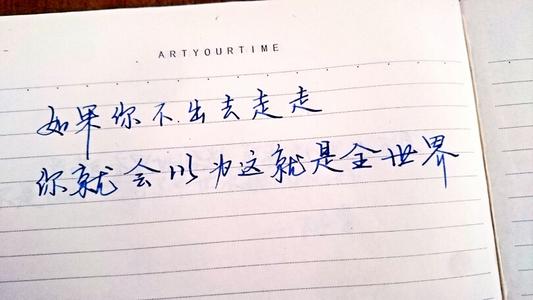 ARTYOURTIME
如果你不出去走走
你就会以为这就是全世界